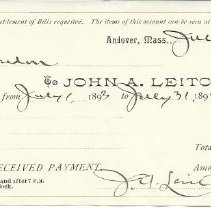 ettlement of Bills requested. The items of this account can be seen at
Andover, Mass.
To JOHN A. LEITC
from July 1, 189 to July 31, 189
Tota
ECEIVED PAYMENT, Amo
and after 7 P.M.
lock.